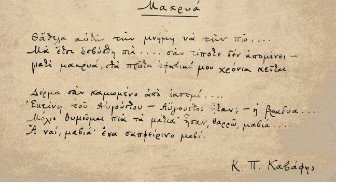 Μακρυά
Θάθελα αυτήν την μνήμη να την πω....
Μα έτσι εσβύσθη πια.... σαν τίποτε δεν απομένει –
γιατί μακρυά, στα πρώτα εφηβικά μου χρόνια κείται.
Δέρμα σαν καμωμένο από ιασεμί....
Εκείνη του Αυγούστου – Αύγουστος ήταν; – η βραδυά....
Μόλις θυμούμαι πια τα μάτια· ήσαν, θαρρώ, μαβιά....
Α ναι, μαβιά· ένα σαπφείρινο μαβί.
Κ. Π. Καβάφης